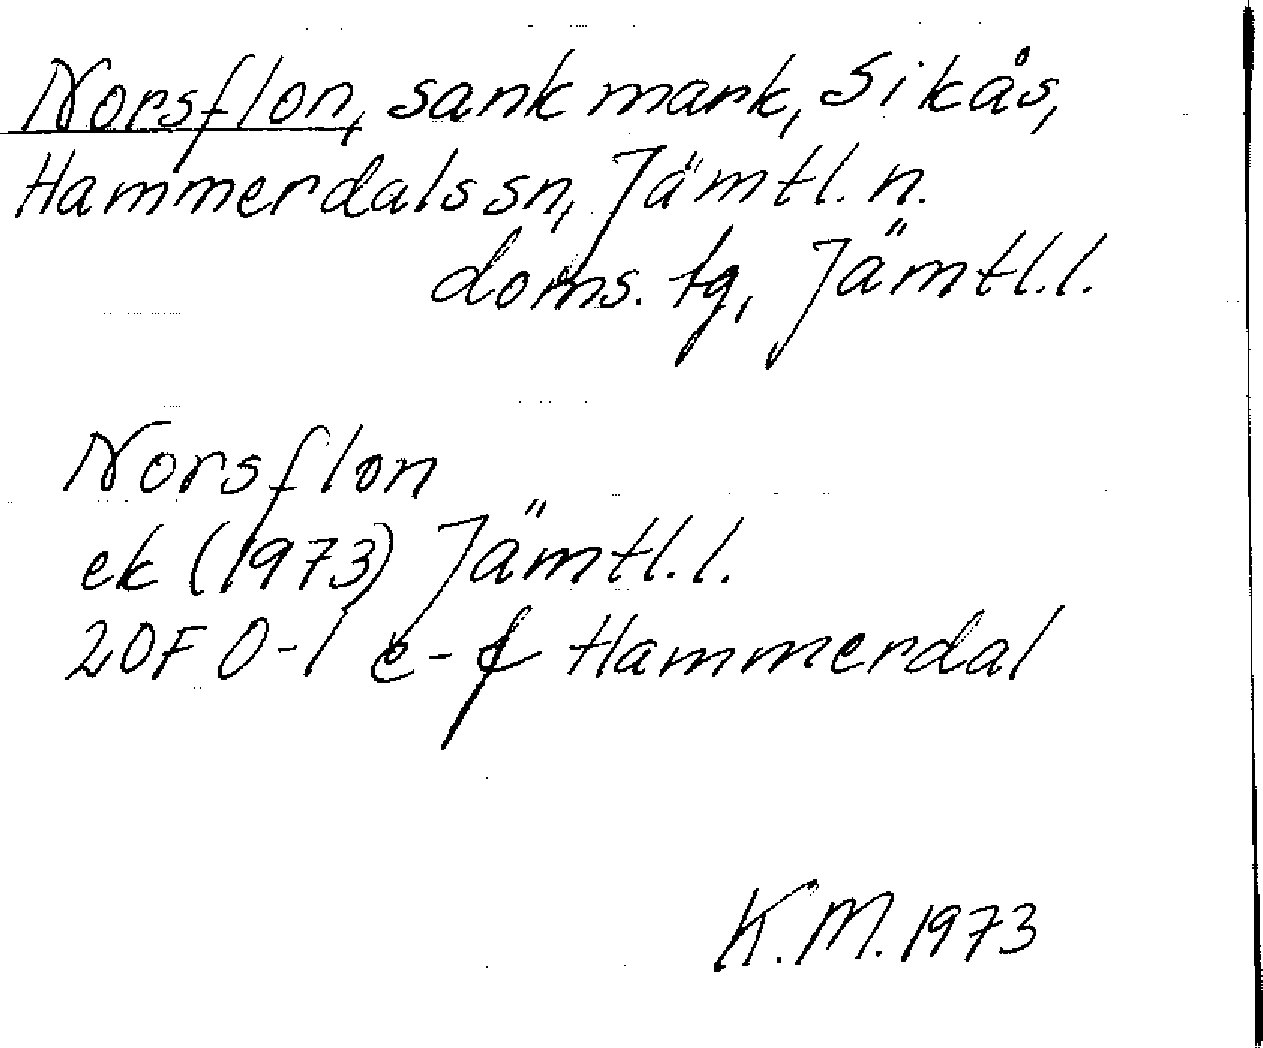 Norsflon, sank mark, Sikås,
Hammerdals sn, Jämtl. n.
doms. tg, Jämtl. l.
Norsflon
ek (1973) Jämtl. l.
20F 0-1 e-f Hammerdal
K.M. 1973